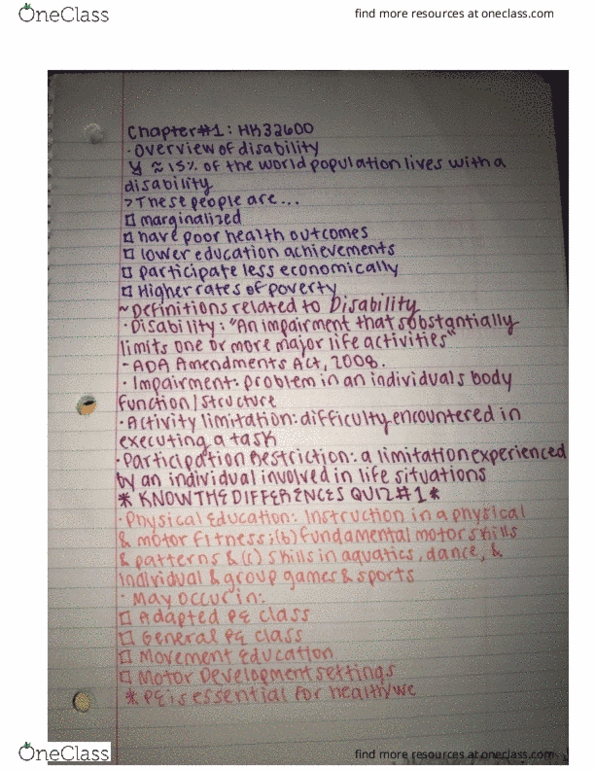 OneClass
find more resources at oneclass.com
Chapter#1: HK32600
·Overview of disability
↳ ≈15% of the world population lives with a
disability
>These people are...
□ marginalized
□ have poor health outcomes
□ lower education achievements
□ participate less economically
□ Higher rates of poverty
~Definitions related to Disability
·Disability: "An impairment that substantially
limits one or more major life activities"
- ADA Amendments Act, 2008.
· Impairment: problem in an individuals body
function/structure
·Activity limitation: difficulty encountered in
executing a task
·Participation Restriction: a limitation experienced
by an individual involved in life situations
* KNOW THE DIFFERENCES QUIZ#1*
·Physical Education: Instruction in a physical
& motor fitness;(b) fundamental motor skills
& patterns &(c) skills in aquatics, dance, &
individual & group games & sports
· May occur in:
□ Adapted PE class
□ General PE class
□ Movement Education
□ Motor Development settings
* PE is essential for health/we
OneClass
find more resources at oneclass.com